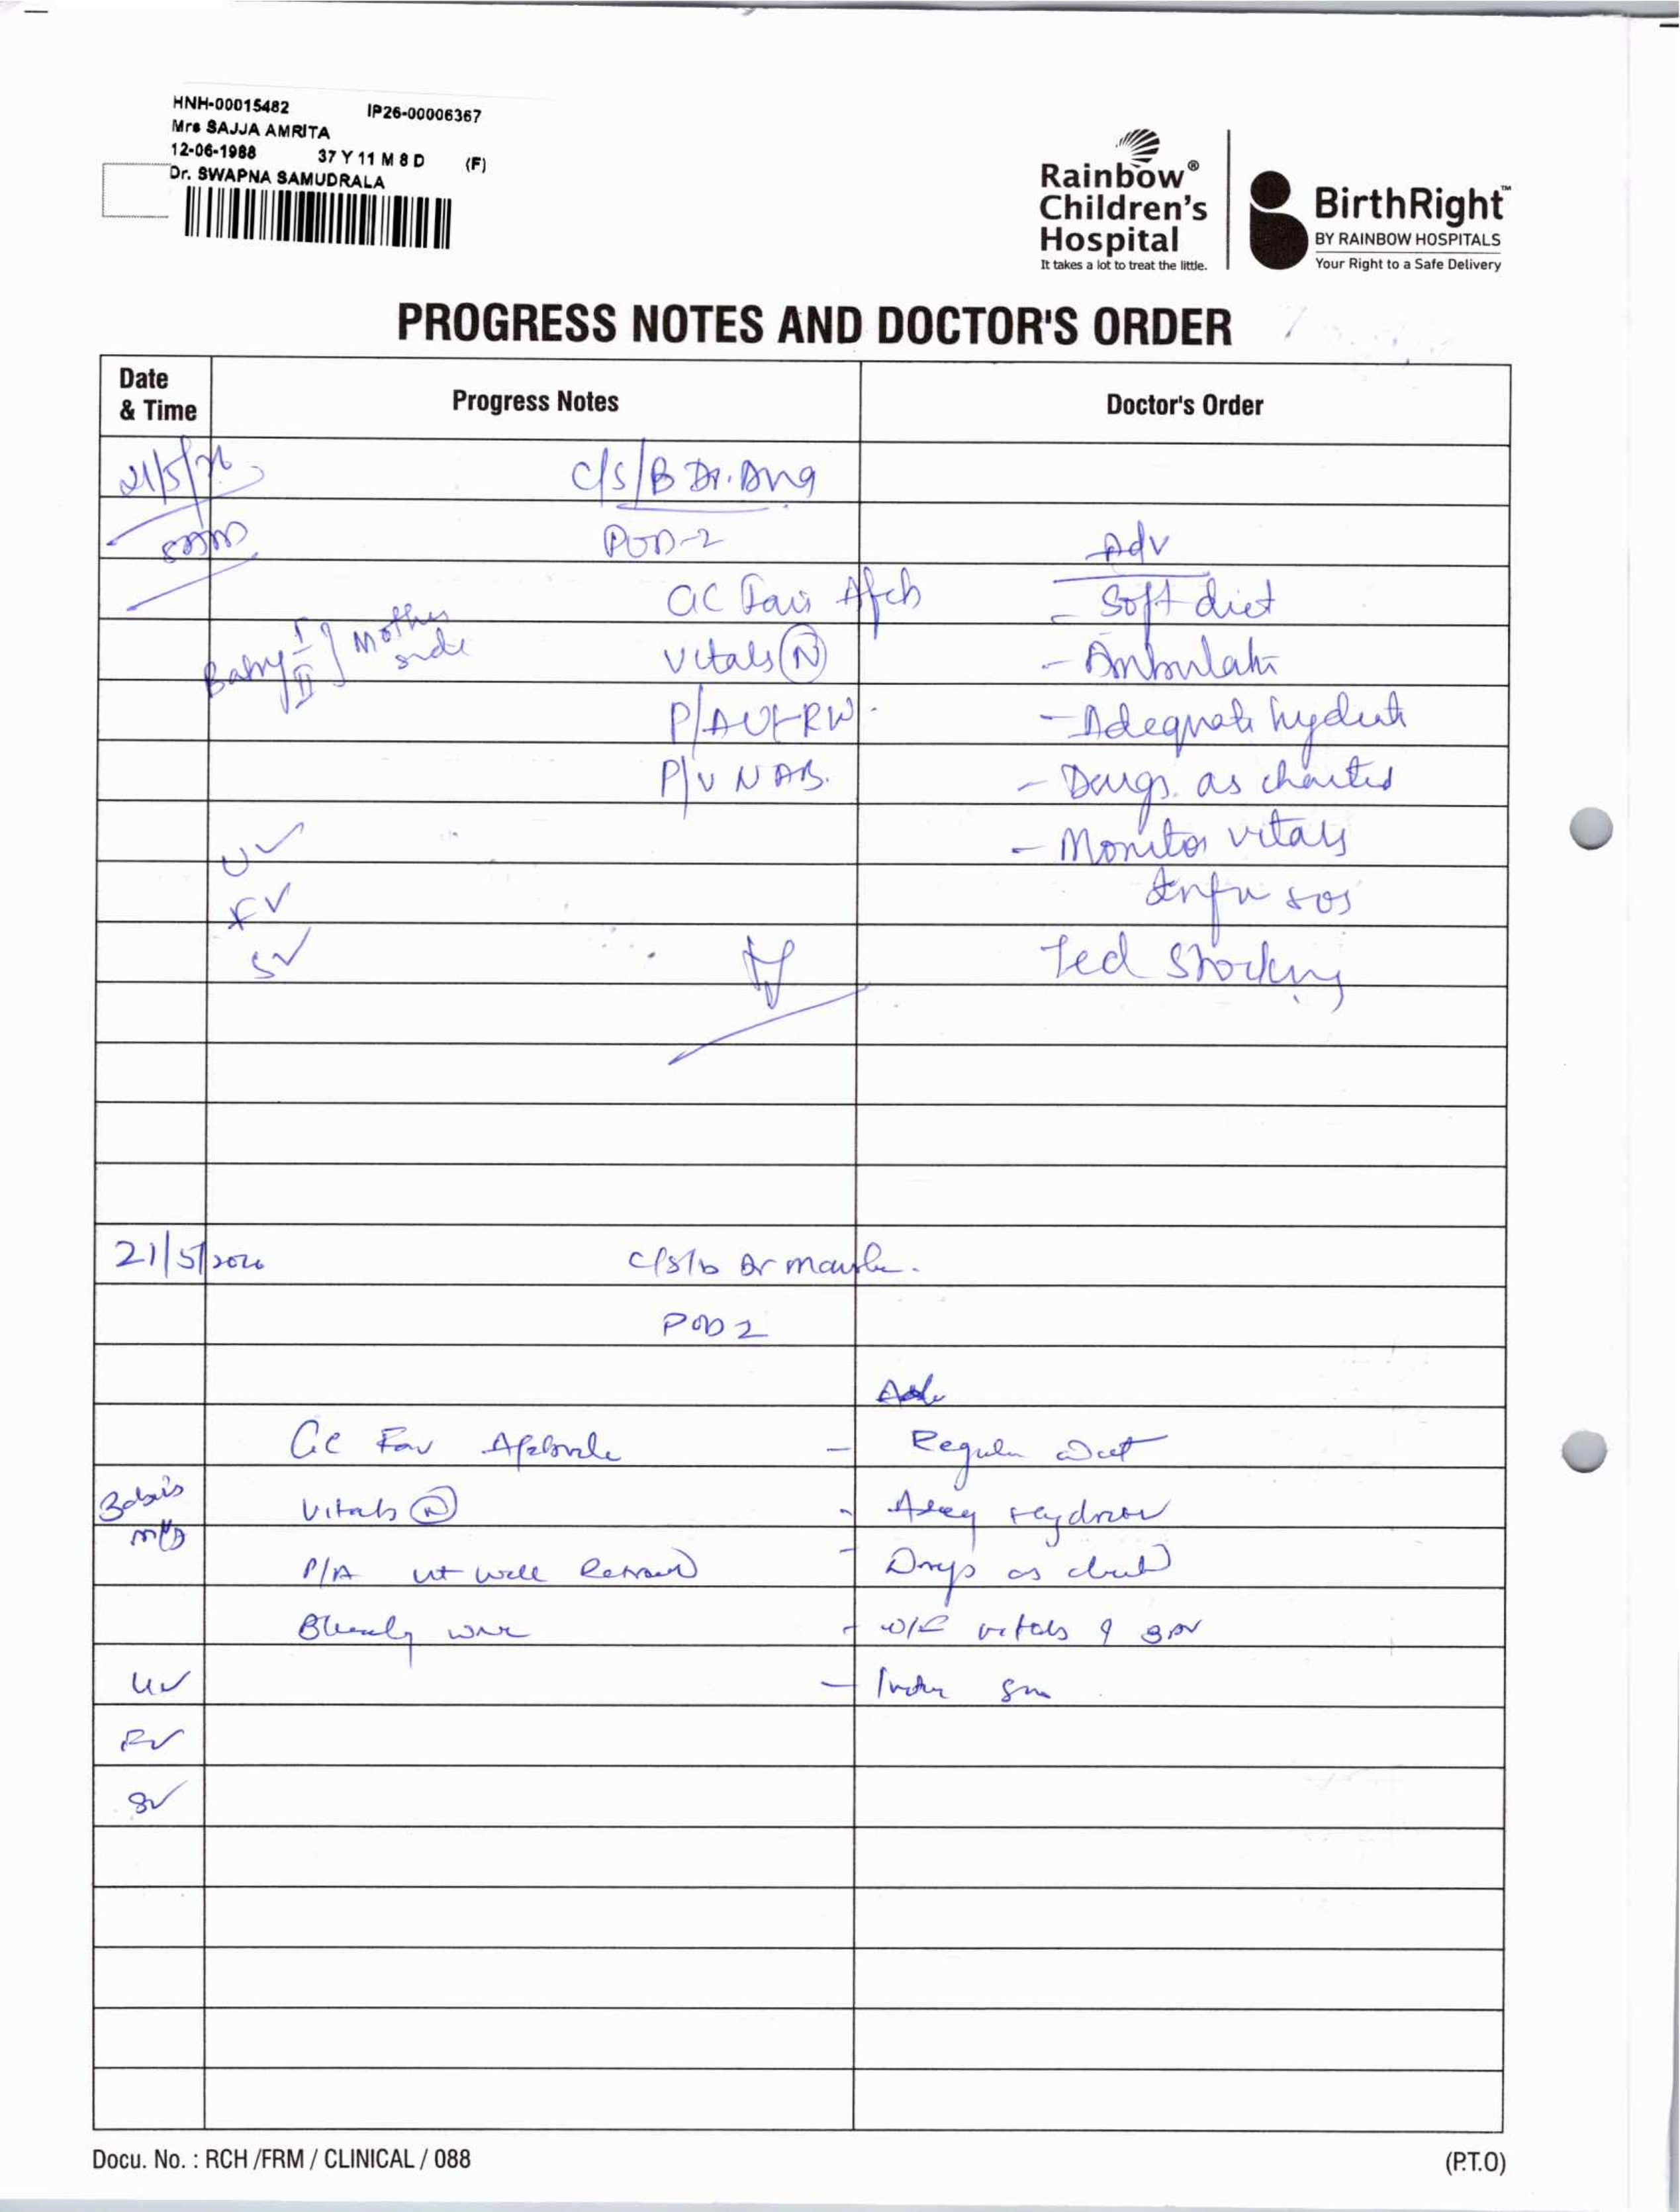 HNH-00015482 IP26-00006367
Mrs SAJJA AMRITA
12-06-1988 37 Y 11 M 8 D (F)
Dr. SWAPNA SAMUDRALA
Rainbow®
Children's
Hospital
It takes a lot to treat the little.
BirthRight™
BY RAINBOW HOSPITALS
Your Right to a Safe Delivery
PROGRESS NOTES AND DOCTOR'S ORDER
Date
& Time
Progress Notes
Doctor's Order
21/5/26 C/S/B Dr.
POD-2 Adv
GC Fair Afeb - Soft diet
Baby I II ] Mother side
Vitals (N) - Ambulate
P/A UT RW - Adequate hydrat
P/V NAB. - Drugs as charted
U✓ - Monitor vitals
F✓ Infm sos
S✓ Ted Stocking
21/5/2026 C/S/b Dr
POD 2
Adv
GC Fair Afebrile - Regular Diet
Vitals (N)
P/A ut well Retracted - Drugs as chart
vitals
U✓
F✓
S✓
Docu. No. : RCH /FRM / CLINICAL / 088
(P.T.O)